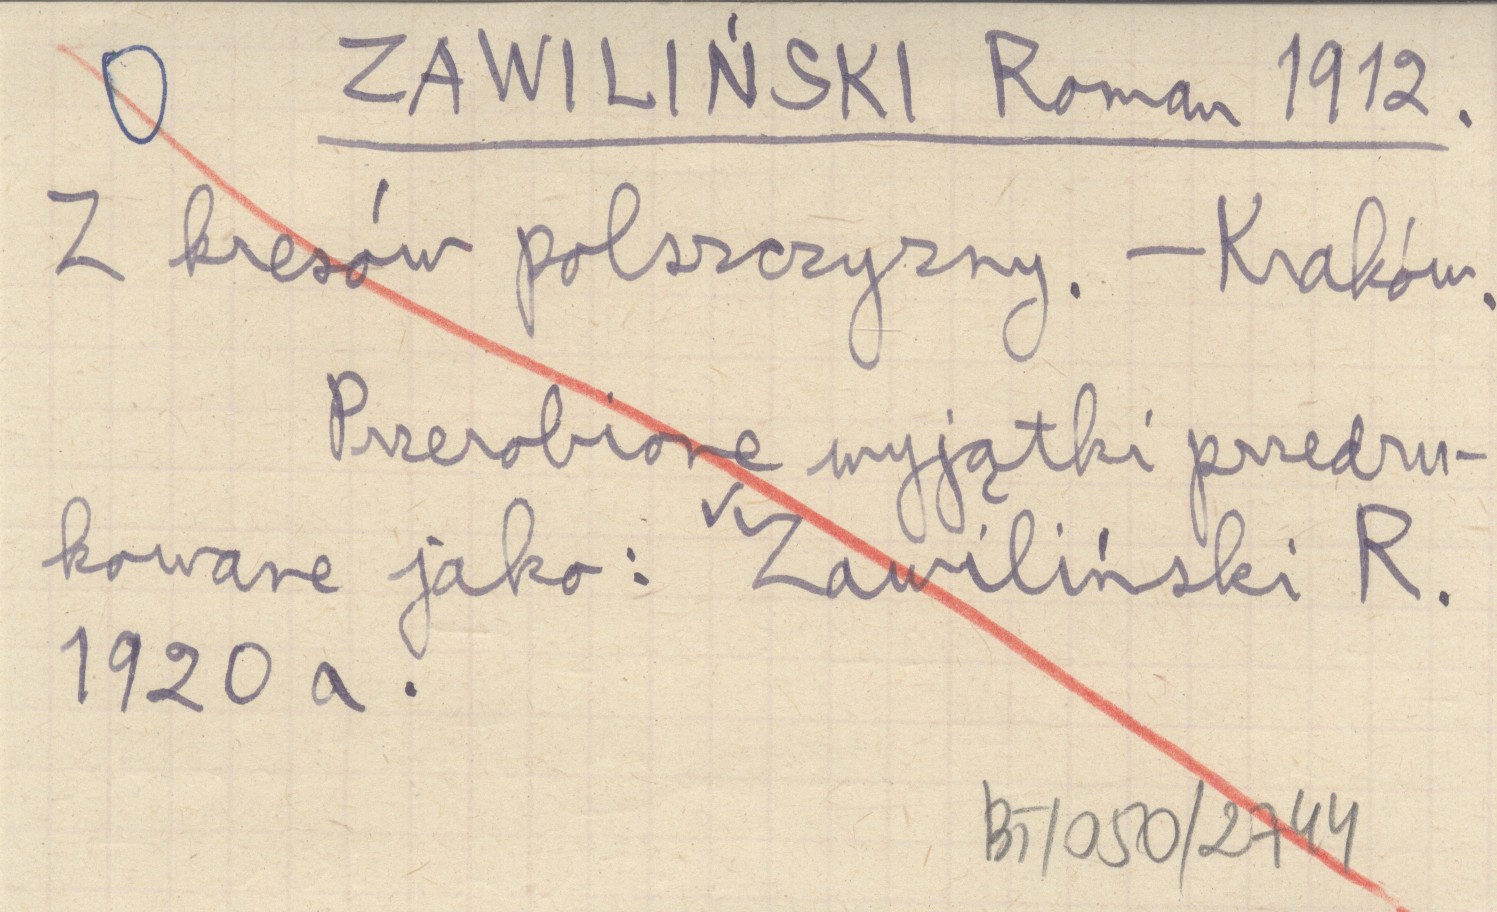 ZAWILIŃSKI Roman 1912.
Z kresów polszczyzny. — Kraków.
Przerobione wyjątki przedru-
kowane jako: Zawiliński R.
1920 a.
BT/050/2744